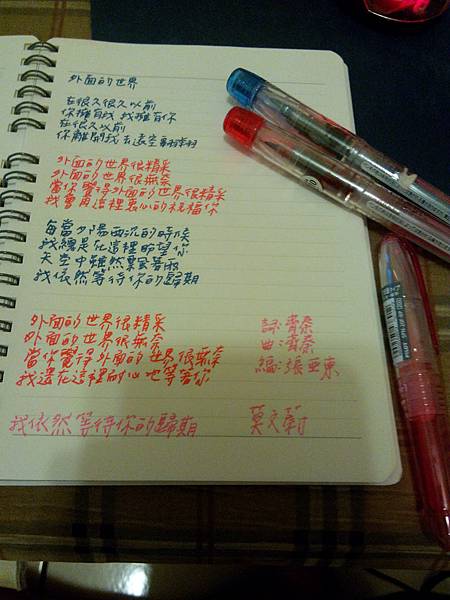 外面的世界
在很久很久以前
你擁有我 我擁有你
在很久以前
你離開我去遠空翱翔
外面的世界很精采
外面的世界很無奈
當你覺得外面的世界很精采
我會再這裡衷心的祝福你
每當夕陽西沉的時候
我總是在這裡盼望你
天空中雖然飄著雨
我依然等待你的歸期
外面的世界很精采
外面的世界很無奈
當你覺得外面的世界很無奈
我還在這裡耐心地等著你
詞:齊秦
曲:齊秦
編:張亞東
我依然等待你的歸期
莫文蔚